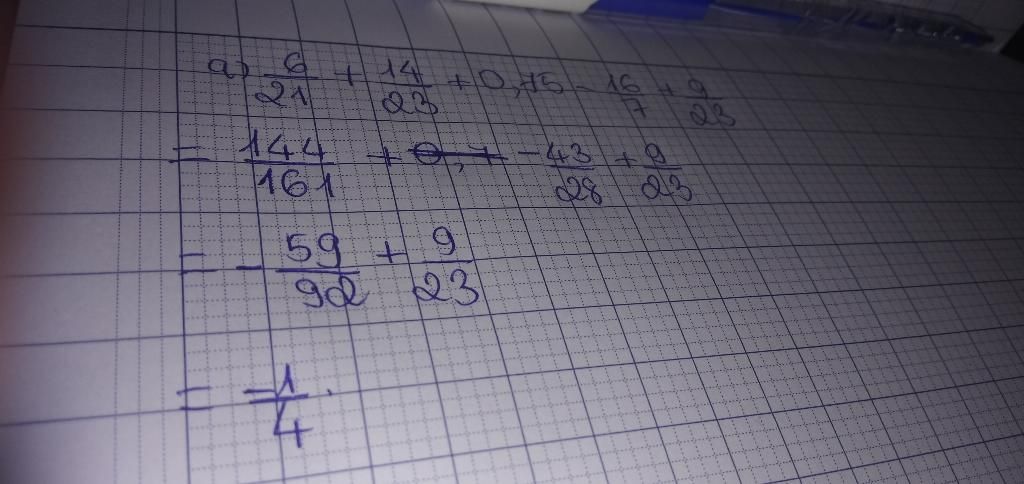 a) 6/21 + 14/23 + 0,75 - 16/7 + 9/23
= 144/161 + 0,7 - 43/28 + 9/23
= - 59/92 + 9/23
= -1/4.